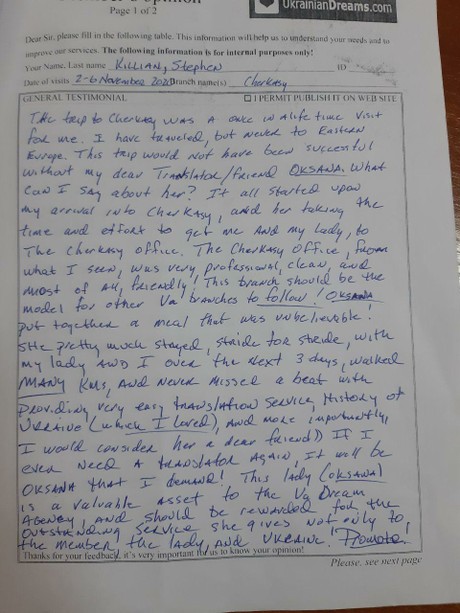 Page 1 of 2
UkrainianDreams.com
Dear Sir, please fill in the following table. This information will help us to understand your needs and to
improve our services. The following information is for internal purposes only!
Your Name, Last name KILLIAN, Stephen ID
Date of visits 2-6 November 2020 Branch name(s) Cherkasy
GENERAL TESTIMONIAL I PERMIT PUBLISH IT ON WEB SITE
The trip to Cherkasy was a once in a life time visit
for me. I have traveled, but never to Eastern
Europe. This trip would not have been successful
without my dear Translator/friend OKSANA. What
can I say about her? It all started upon
my arrival into Cherkasy, and her taking the
time and effort to get me and my lady, to
The Cherkasy office. The Cherkasy office, from
what I seen, was very, professional, clean, and
most of all, friendly! This branch should be the
model for other Ua branches to follow! OKSANA
put together a meal that was unbelievable!
She pretty much stayed, stride for stride, with
my lady AND I over the next 3 days, walked
MANY Kms, and never missed a beat with
providing very easy translation service, History of
Ukraine (which I loved), and more importantly,
I would consider her a dear friend)) If I
ever need a translator again, it will be
OKSANA that I demand! This lady (OKSANA)
is a valuable asset to the Ua Dream
Agency, and should be rewarded for the
outstanding service she gives not only to
the member, the lady, and Ukraine. "Promote!"
Thanks for your feedback, it's very important for us to know your opinion!
Please, see next page